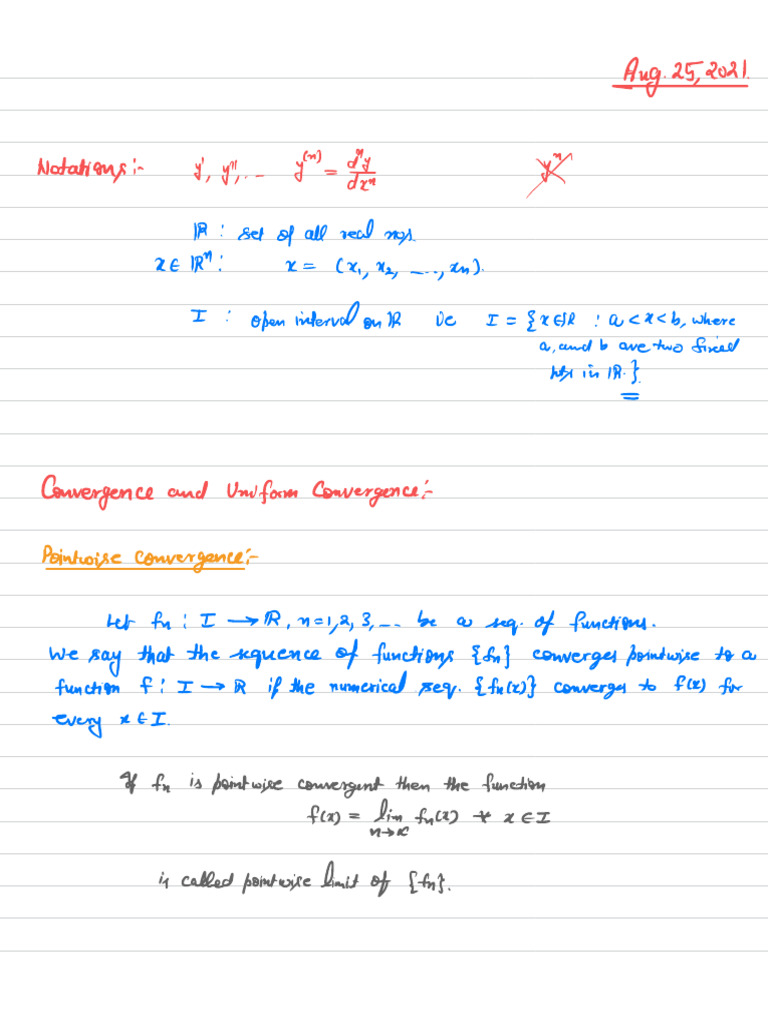 Aug. 25, 2021.
Notations:- y', y'', ... y^(n) = d^n y / dx^n y^n
ℝ : set of all real nos.
x ∈ ℝ^n : x = (x₁, x₂, ..., xₙ).
I : open interval on ℝ ie I = {x ∈ ℝ : a < x < b, where
a, and b are two fixed
pts in ℝ.}
Convergence and Uniform Convergence:-
Pointwise Convergence:-
Let fₙ : I → ℝ, n = 1, 2, 3, ... be a seq. of functions.
We say that the sequence of functions {fₙ} converges pointwise to a
function f : I → ℝ if the numerical seq. {fₙ(x)} converges to f(x) for
every x ∈ I.
If fₙ is pointwise convergent then the function
f(x) = lim fₙ(x) ∀ x ∈ I
n→∞
is called pointwise limit of {fₙ}.